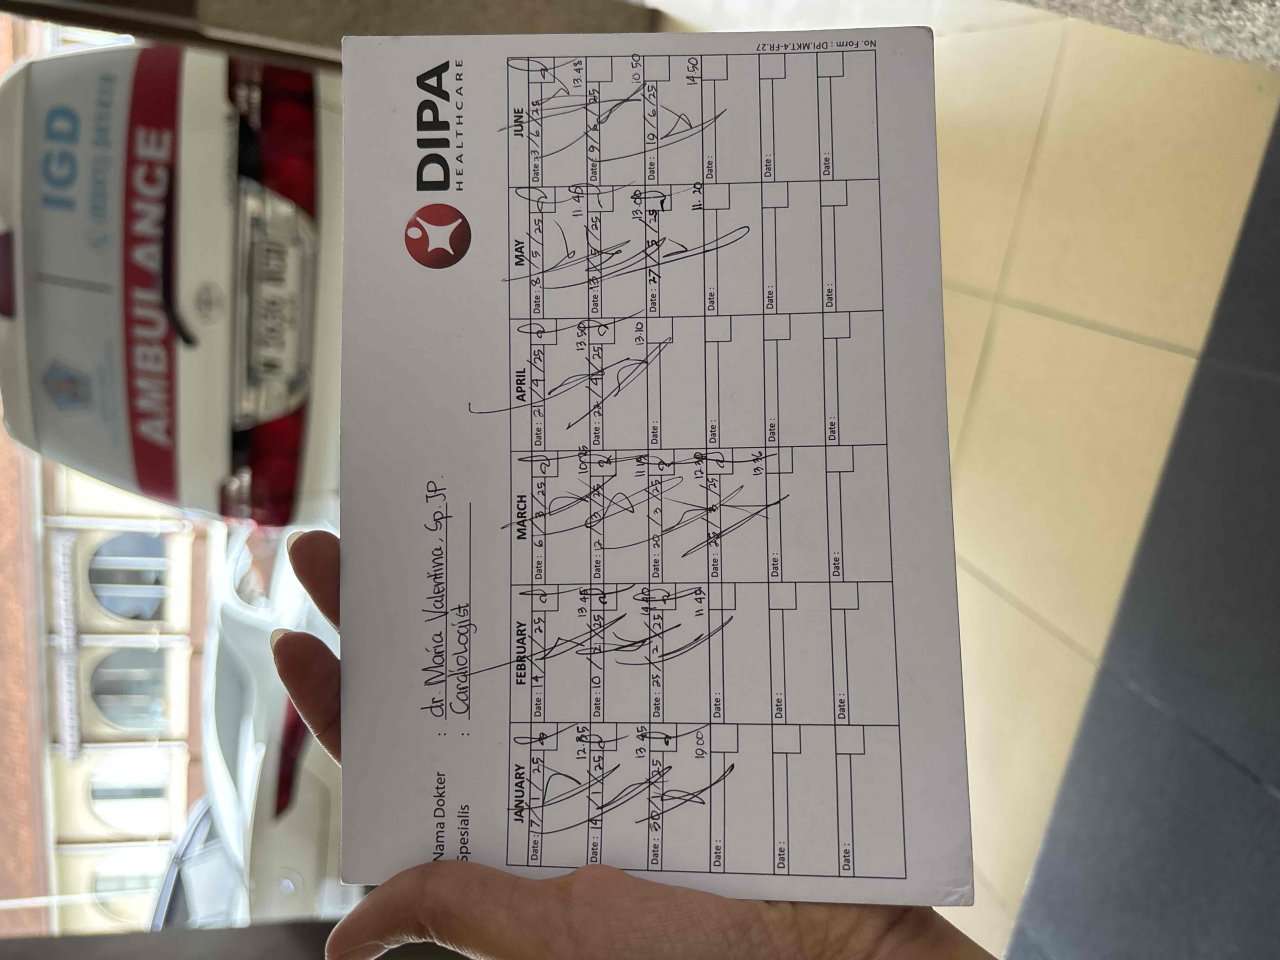 DIPA
HEALTHCARE
Nama Dokter : dr. Maria Valentina, Sp.JP.
Spesialis : Cardiologist
JANUARY FEBRUARY MARCH APRIL MAY JUNE
Date: 7/1/25 Date: 4/2/25 Date: 6/3/25 Date: 2/4/25 Date: 8/5/25 Date: 3/6/25
12.35 13.45 10.25 13.50 11.45 13.48
Date: 14/1/25 Date: 10/2/25 Date: 12/3/25 Date: 22/4/25 Date: 13/5/25 Date: 9/6/25
13.45 14.10 11.15 13.10 13.00 10.50
Date: 30/1/25 Date: 25/2/25 Date: 20/3/25 Date: Date: 27/5/25 Date: 19/6/25
10.00 11.45 12.30 11.20 14.50
Date: Date: Date: 25/3/25 Date: Date: Date:
13.36
Date: Date: Date: Date: Date: Date:
Date: Date: Date: Date: Date: Date:
No. Form : DPI.MKT-4-FR.27
AMBULANCE
IGD